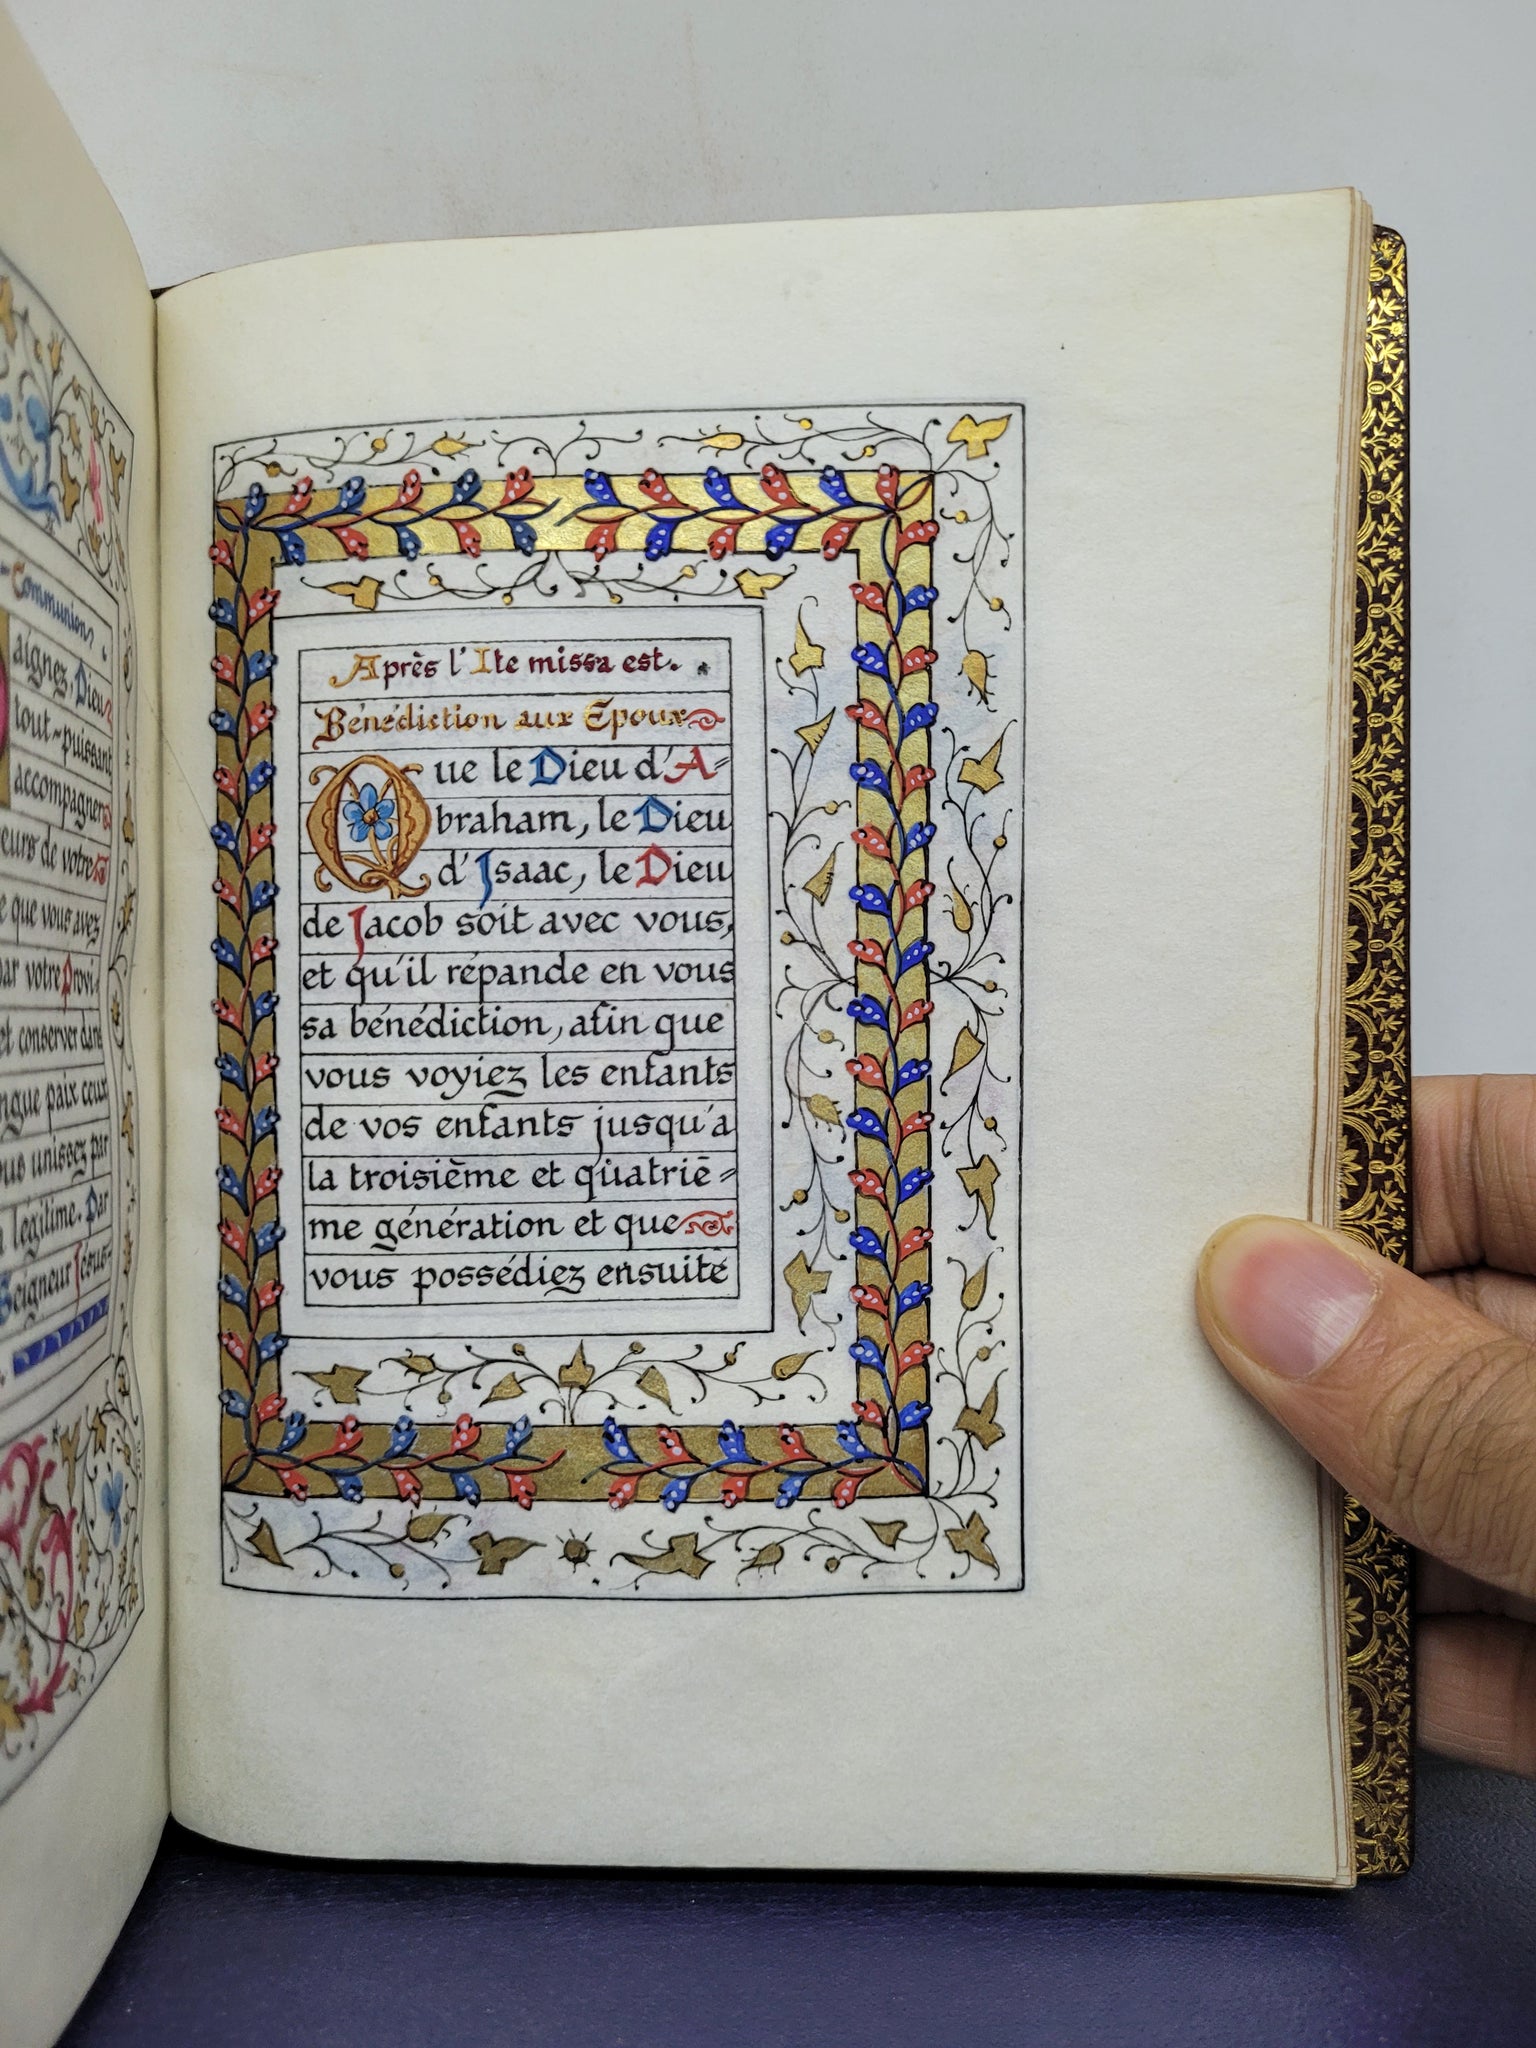 Communion
aignez, Dieu
tout-puissant
accompagner
eurs de votre
e que vous avez
par votre Provi-
et conserver dans
ngue paix ceux
ous unissez par
légitime. Par
Seigneur Jésus-
Après l'Ite missa est.
Bénédiction aux Epoux
Que le Dieu d'A=
braham, le Dieu
d'Isaac, le Dieu
de Jacob soit avec vous,
et qu'il répande en vous
sa bénédiction, afin que
vous voyiez les enfants
de vos enfants jusqu'a
la troisième et quatriè=
me génération et que
vous possédiez ensuite